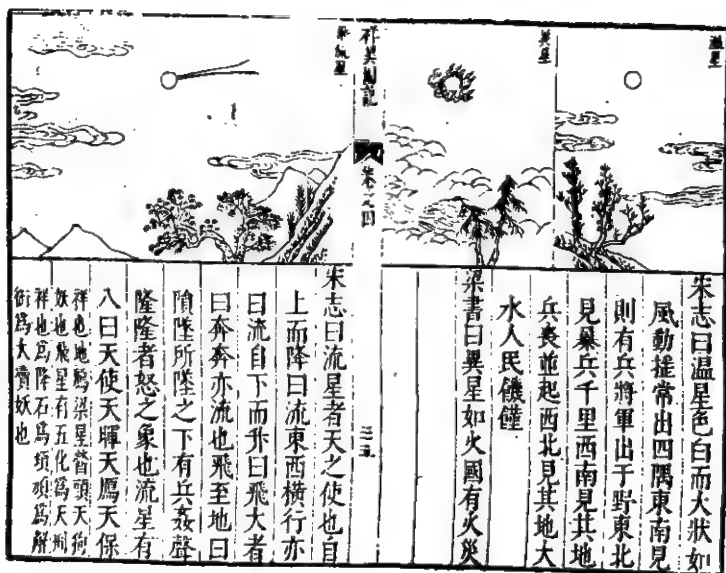 溫星
宋志曰温星色白而大狀如
風動搖常出四隅東南見
則有兵將軍出于野東北
見暴兵千里西南見其地
兵喪並起西北見其地大
水人民饑饉
異星
梁書曰異星如火國有火災
祥異圖說
卷之四
流星
宋志曰流星者天之使也自
上而降曰流東西橫行亦
曰流自下而升曰飛大者
曰奔奔亦流也飛至地曰
隕墜所墜之下有兵姦聲
隆隆者怒之象也流星有
八曰天使天暉天鴈天保
祥也地鴈梁星營頭天狗
妖也飛星有五化為天刑
祥也為降石為頓頑為解
銜為大滑妖也